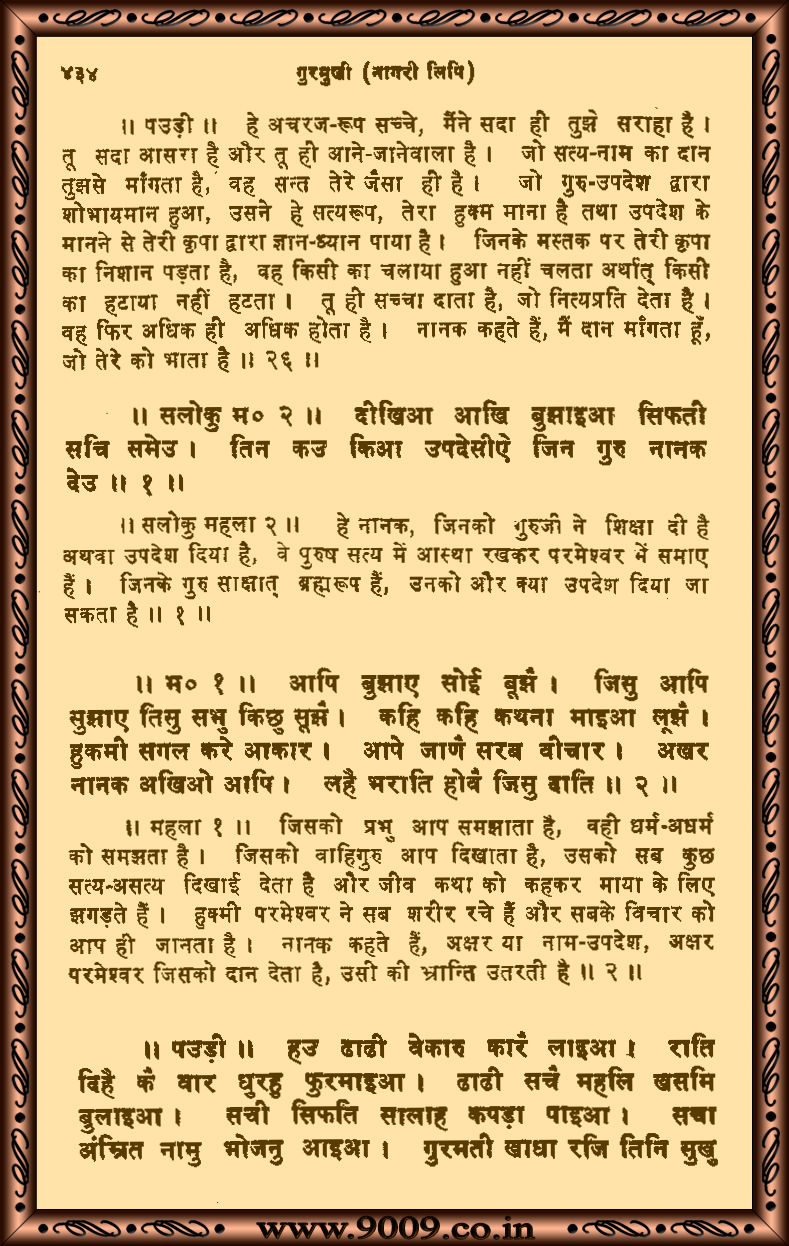 ४३४ गुरमुखी (नागरी लिपि)
॥ पउड़ी ॥ हे अचरज-रूप सच्चे, मैंने सदा ही तुझे सराहा है ।
तू सदा आसरा है और तू ही आने-जानेवाला है । जो सत्य-नाम का दान
तुझसे माँगता है, वह सन्त तेरे जैसा ही है । जो गुरु-उपदेश द्वारा
शोभायमान हुआ, उसने हे सत्यरूप, तेरा हुक्म माना है तथा उपदेश के
मानने से तेरी कृपा द्वारा ज्ञान-ध्यान पाया है । जिनके मस्तक पर तेरी कृपा
का निशान पड़ता है, वह किसी का चलाया हुआ नहीं चलता अर्थात् किसी
का हटाया नहीं हटता । तू ही सच्चा दाता है, जो नित्यप्रति देता है ।
वह फिर अधिक ही अधिक होता है । नानक कहते हैं, मैं दान माँगता हूँ,
जो तेरे को भाता है ॥ २६ ॥
॥ सलोकु म० २ ॥ दीखिआ आखि बुझाइआ सिफती
सचि समेउ । तिन कउ किआ उपदेसीऐ जिन गुरु नानक
देउ ॥ १ ॥
॥ सलोकु महला २ ॥ हे नानक, जिनको गुरुजी ने शिक्षा दी है
अथवा उपदेश दिया है, वे पुरुष सत्य में आस्था रखकर परमेश्वर में समाए
हैं । जिनके गुरु साक्षात् ब्रह्मरूप हैं, उनको और क्या उपदेश दिया जा
सकता है ॥ १ ॥
॥ म० १ ॥ आपि बुझाए सोई बूझै । जिसु आपि
सुझाए तिसु सभु किछु सूझै । कहि कहि कथना माइआ लूझै ।
हुकमी सगल करे आकार । आपे जाणै सरब वीचार । अखर
नानक अखिओ आपि । लहै भराति होवै जिसु दाति ॥ २ ॥
॥ महला १ ॥ जिसको प्रभु आप समझाता है, वही धर्म-अधर्म
को समझता है । जिसको वाहिगुरु आप दिखाता है, उसको सब कुछ
सत्य-असत्य दिखाई देता है और जीव कथा को कहकर माया के लिए
झगड़ते हैं । हुक्मी परमेश्वर ने सब शरीर रचे हैं और सबके विचार को
आप ही जानता है । नानक कहते हैं, अक्षर या नाम-उपदेश, अक्षर
परमेश्वर जिसको दान देता है, उसी की भ्रान्ति उतरती है ॥ २ ॥
॥ पउड़ी ॥ हउ ढाढी वेकारु कारै लाइआ । राति
दिहै कै वार धुरहु फुरमाइआ । ढाढी सचै महलि खसमि
बुलाइआ । सची सिफति सालाह कपड़ा पाइआ । सचा
अंम्रित नामु भोजनु आइआ । गुरमती खाधा रजि तिनि सुखु
www.9009.co.in